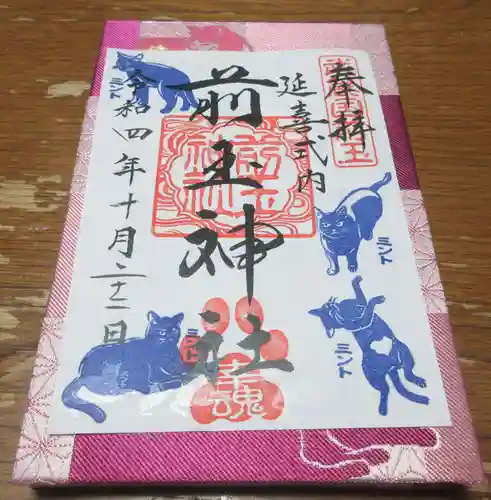 奉拝
延喜式内
前玉神社
令和四年十月二十二日
ミント
ミント
ミント
ミント
幸魂